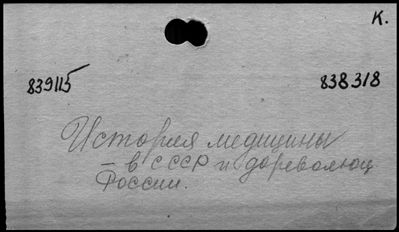 К.
839115
838318
История медицины
— в СССР и дореволюц
России.